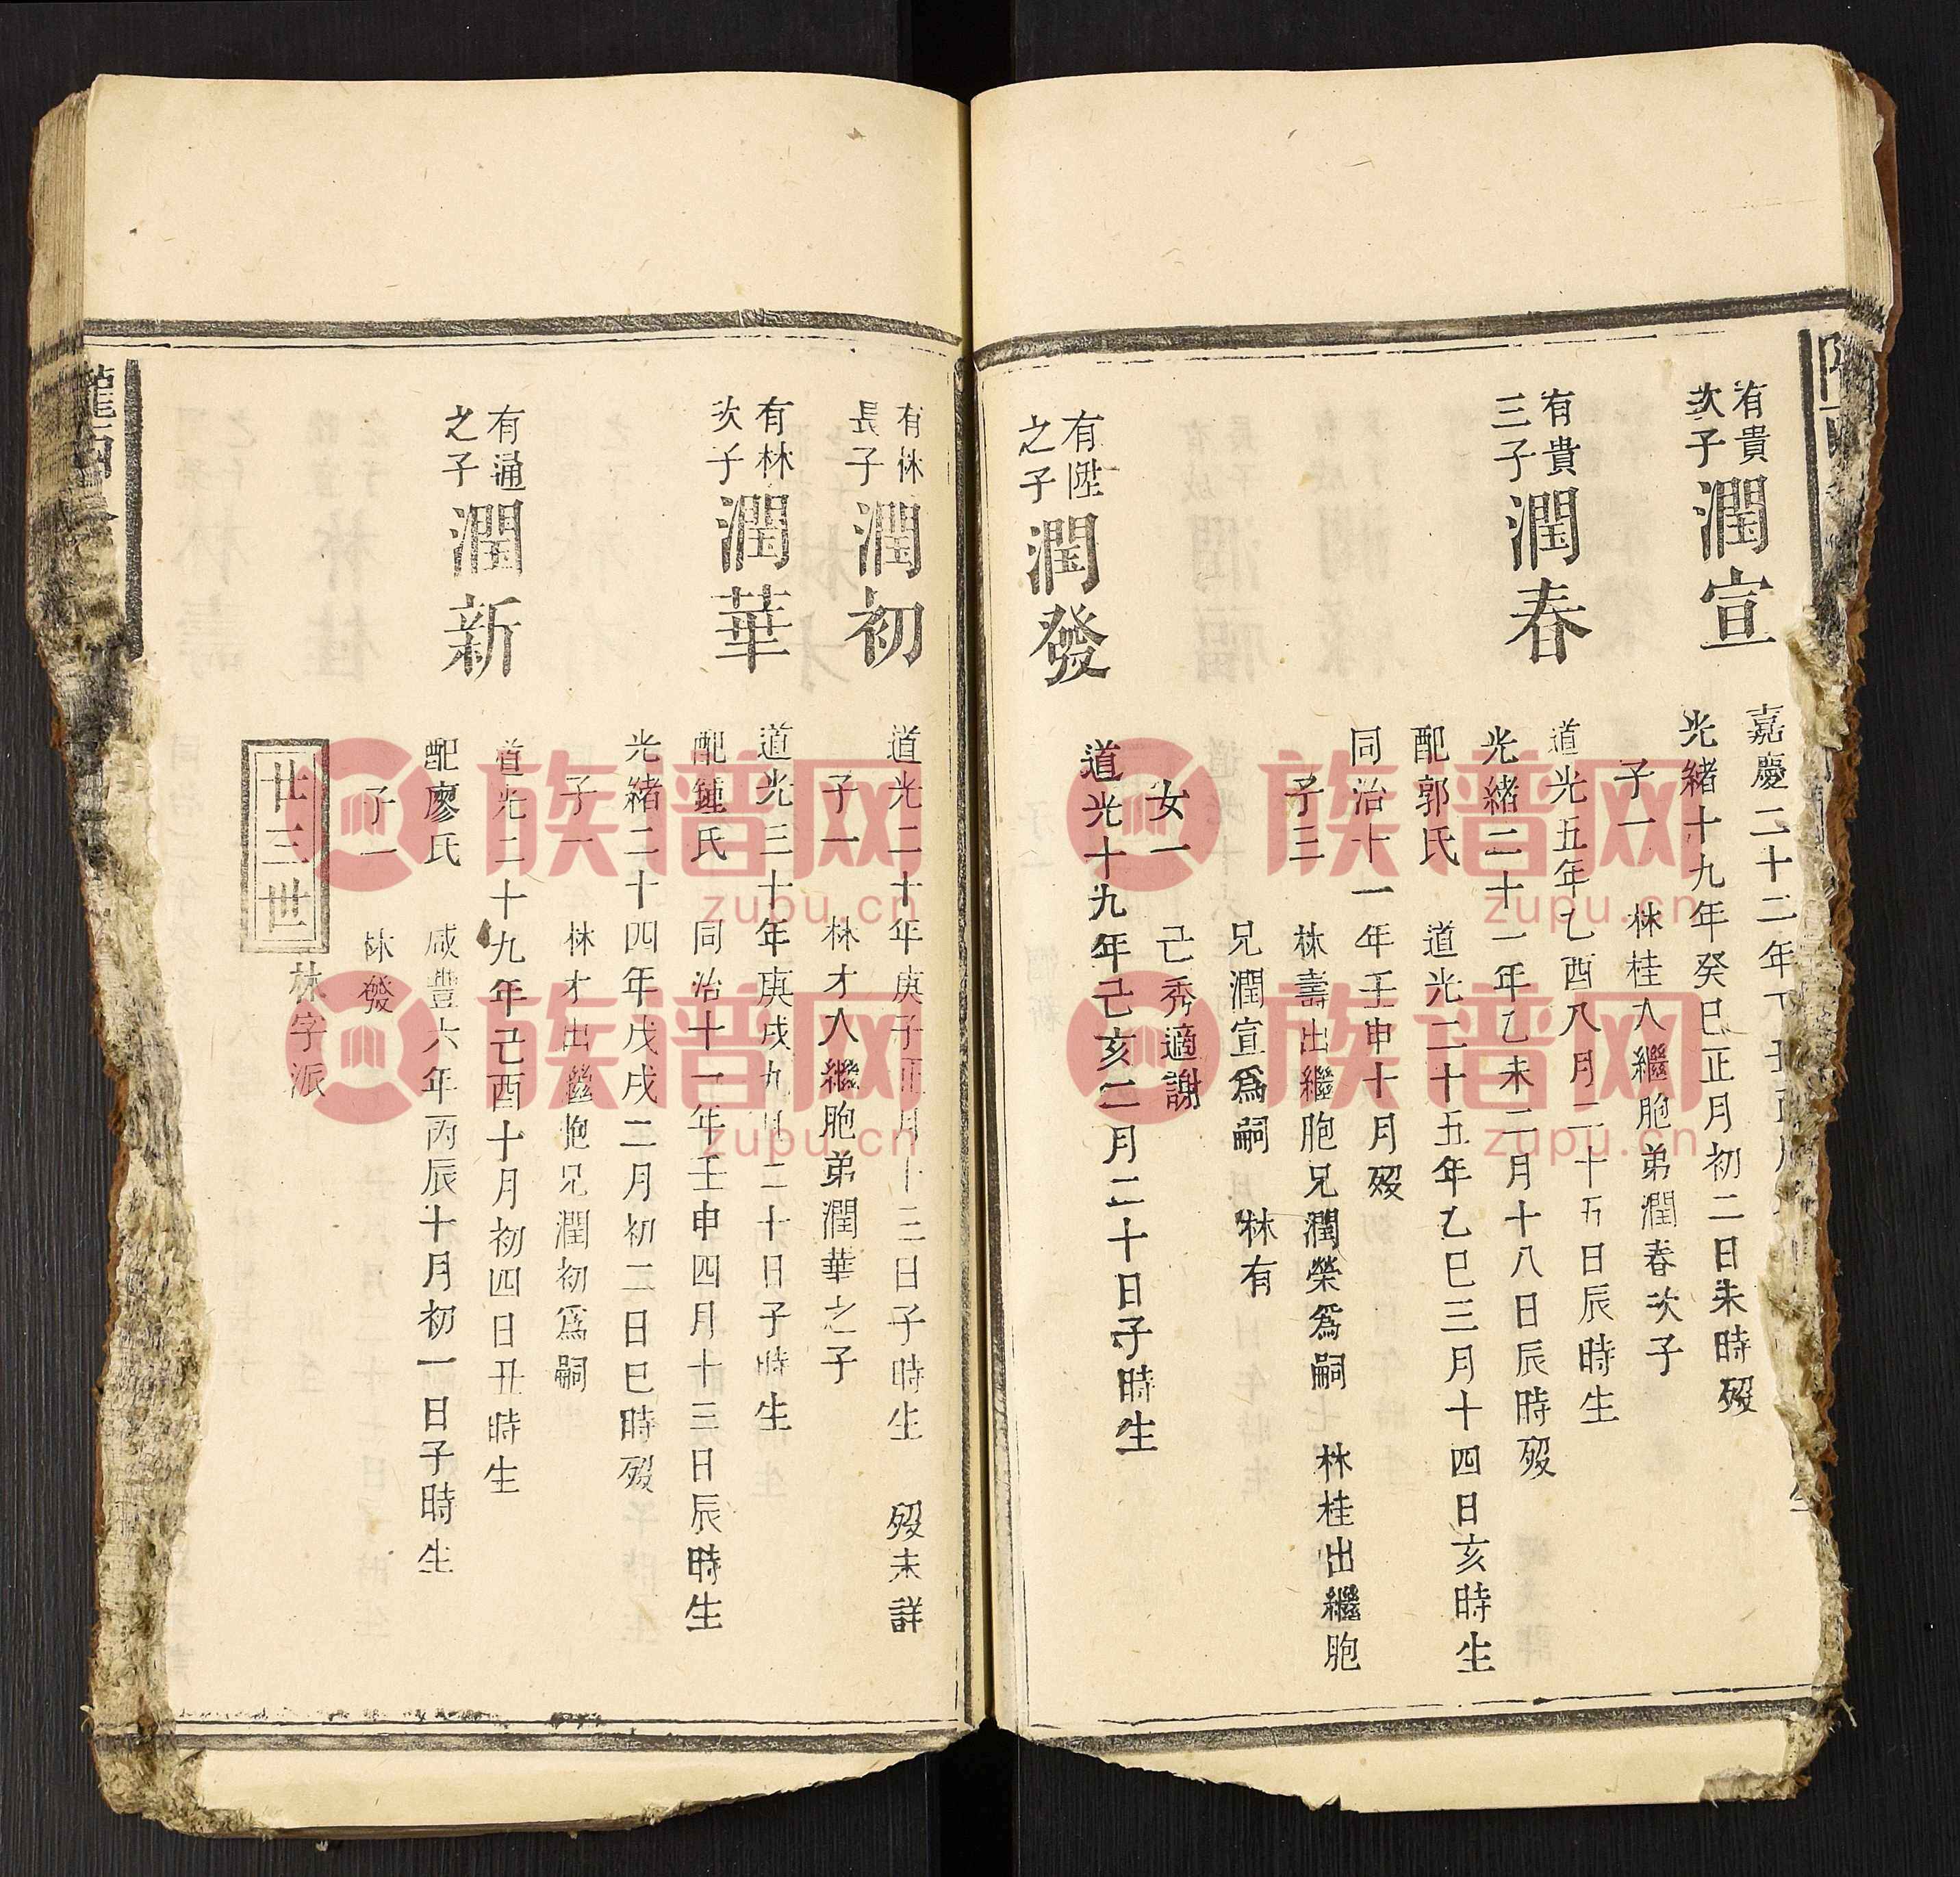 有貴
次子
潤宣
嘉慶二十二年丁丑
生
光緒十九年癸巳正月初二日未時歿
子一 林桂入繼胞弟潤春次子
有貴
三子
潤春
道光五年乙酉八月二十五日辰時生
光緒二十一年乙未二月十八日辰時歿
配郭氏 道光二十五年乙巳三月十四日亥時生
同治十一年壬申十月歿
子三 林壽出繼胞兄潤榮爲嗣 林桂出繼胞
兄潤宣爲嗣 林有
女一 己秀適謝
有陞
之子
潤發
道光十九年己亥二月二十日子時生
有林
長子
潤初
道光二十年庚子正月十三日子時生 歿未詳
子一 林才入繼胞弟潤華之子
有林
次子
潤華
道光三十年庚戌九月二十日子時生
配鍾氏 同治十一年壬申四月十三日辰時生
光緒二十四年戊戌二月初二日巳時歿
子一 林才出繼胞兄潤初爲嗣
有通
之子
潤新
道光二十九年己酉十月初四日丑時生
配廖氏 咸豐六年丙辰十月初一日子時生
子一 林發
廿三世
林字派
族谱网
zupu.cn
族谱网
zupu.cn
族谱网
zupu.cn
族谱网
zupu.cn